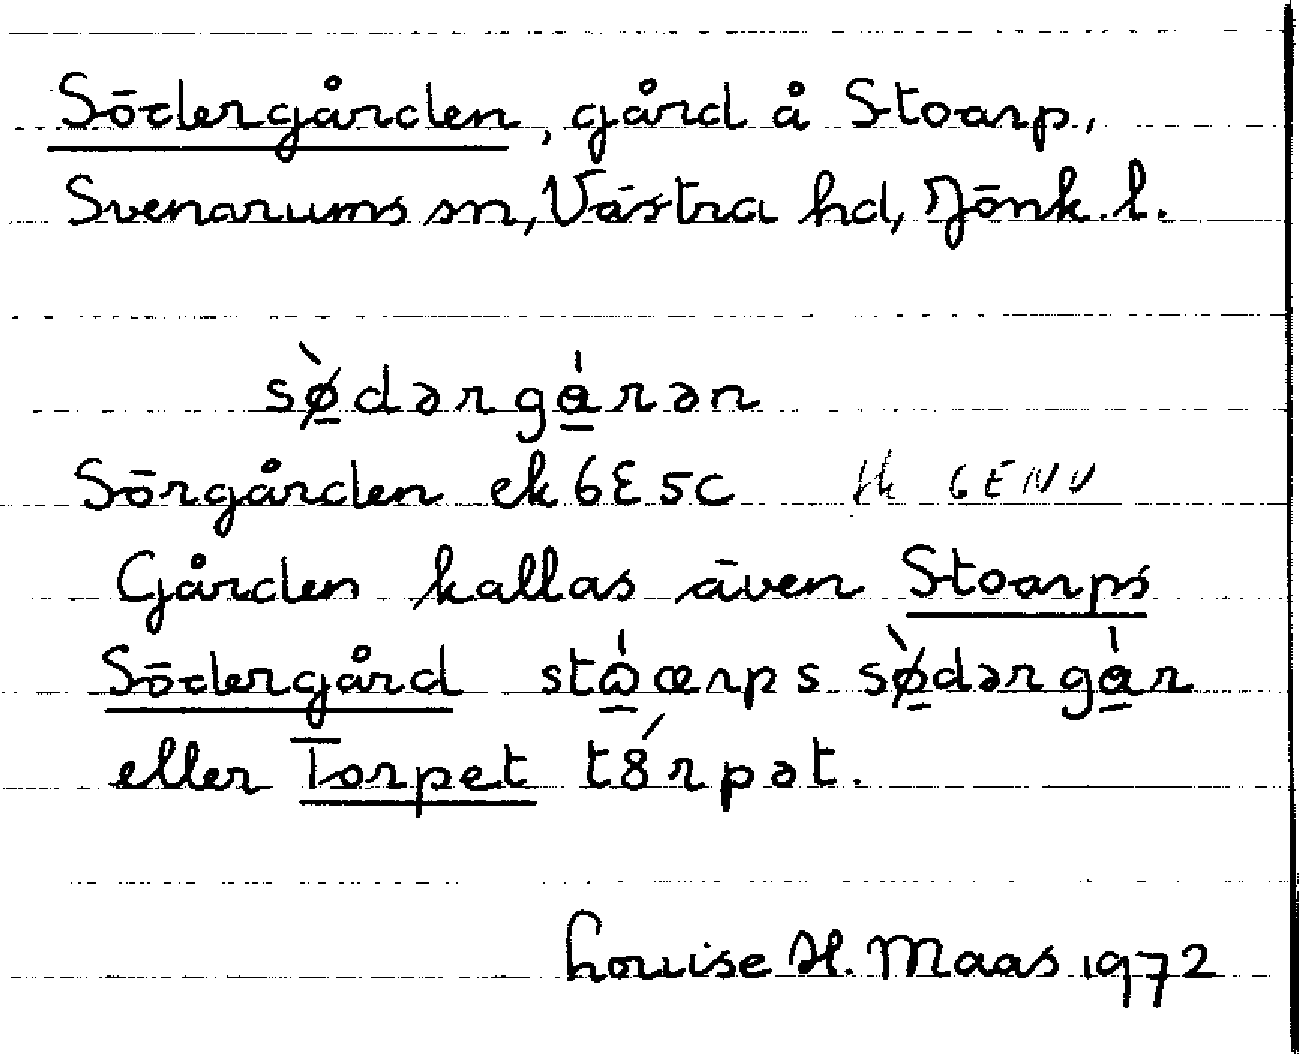 Södergården, gård å Stoarp,
Svenarums sn, Västra hd, Jönk. l.
sø̀dərgɑ́rən
Sörgården ek 6E5c Ek 6ENV
Gården kallas även Stoarps
Södergård stɷ́œrps sø̀dərgɑ́r
eller Torpet t8́rpət.
Louise H. Maas 1972